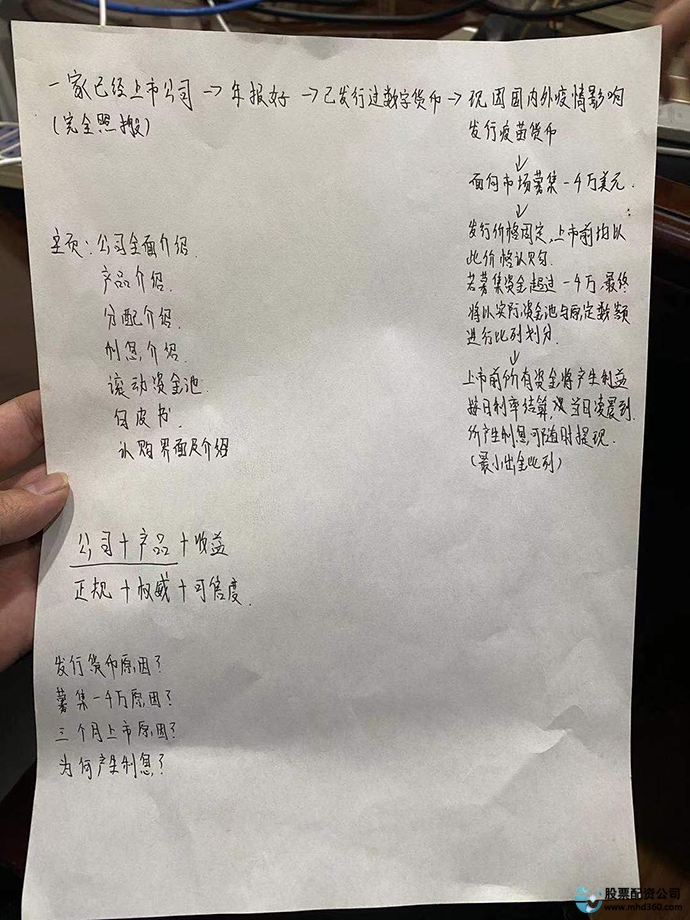 一家已经上市公司→年报好→已发行过数字货币→现因国内外疫情影响
(完全照搬)
发行疫苗货币
↓
面向市场募集一千万美元.
↓
发行价格固定,上市前均以
此价格认购.
若募集资金超过一千万.最终
将以实际资金池与原定数额
进行比列划分.
↓
上市前所有资金将产生利益
按日利率结算,次当日凌晨到.
所产生利息,可随时提现.
(最小出金比列)
主页:公司全面介绍.
产品介绍.
分配介绍.
利息介绍.
滚动资金池
白皮书.
认购界面及介绍
公司+产品+收益
正规+权威+可信度.
发行货币原因?
募集一千万原因?
三个月上市原因?
为何产生利息?
股票配资公司
www.mhd360.com